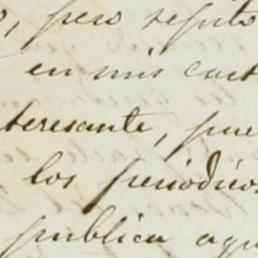 , pero repito
en mis cart
teresante, pue
los periódico
publica aqu